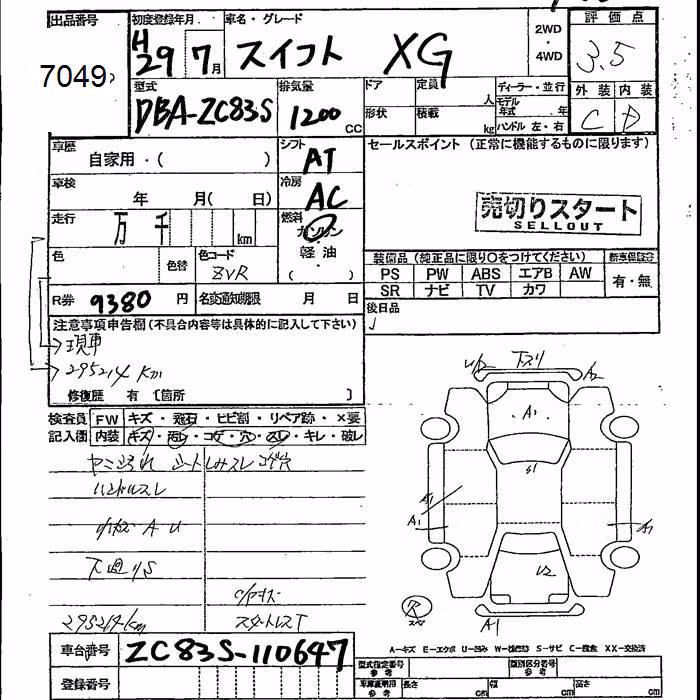 出品番号 初度登録年月 車名・グレード 2WD ・ 4WD 評価点
7049 H29 7月 スイフト XG 3.5
型式 排気量 ドア 定員 人 ディーラー・並行 外装 内装
DBA-ZC83S 1200 CC 形状 積載 kg モデル年式 年 ハンドル 左・右 C D
車歴 シフト セールスポイント (正常に機能するものに限ります)
自家用・( ) AT
車検 冷房
年 月( 日) AC
売切りスタート
SELLOUT
走行 万 千 km 燃料
ガソリン
色 色替 色コード 軽油
ZVR ( )
装備品(純正品に限り○をつけてください) 新車保証書
PS PW ABS エアB AW 有・無
SR ナビ TV カワ
R券 9380 円 名変通知期限 月 日 後日品
注意事項申告欄(不具合内容等は具体的に記入して下さい)
現車
295214 km
修復歴 有 〔箇所 〕
検査員 FW キズ・飛石・ヒビ割・リペア跡・×要
記入欄 内装 キズ・汚レ・コゲ・穴・スレ・キレ・破レ
シートしみスレコゲ穴
ハンドルスレ
下廻りS
295214km スタットレスT
下スリ
U2
A2
A1
S1
A1
A1
A1
U2
A1
A-キズ E-エクボ U-凹み W-補修跡 S-サビ C-腐食 XX-交換済
車台番号 ZC83S-110647
登録番号
型式指定番号 参考 類別区分番号 参考
車庫証明用 参考 長さ cm 幅 cm 高さ cm